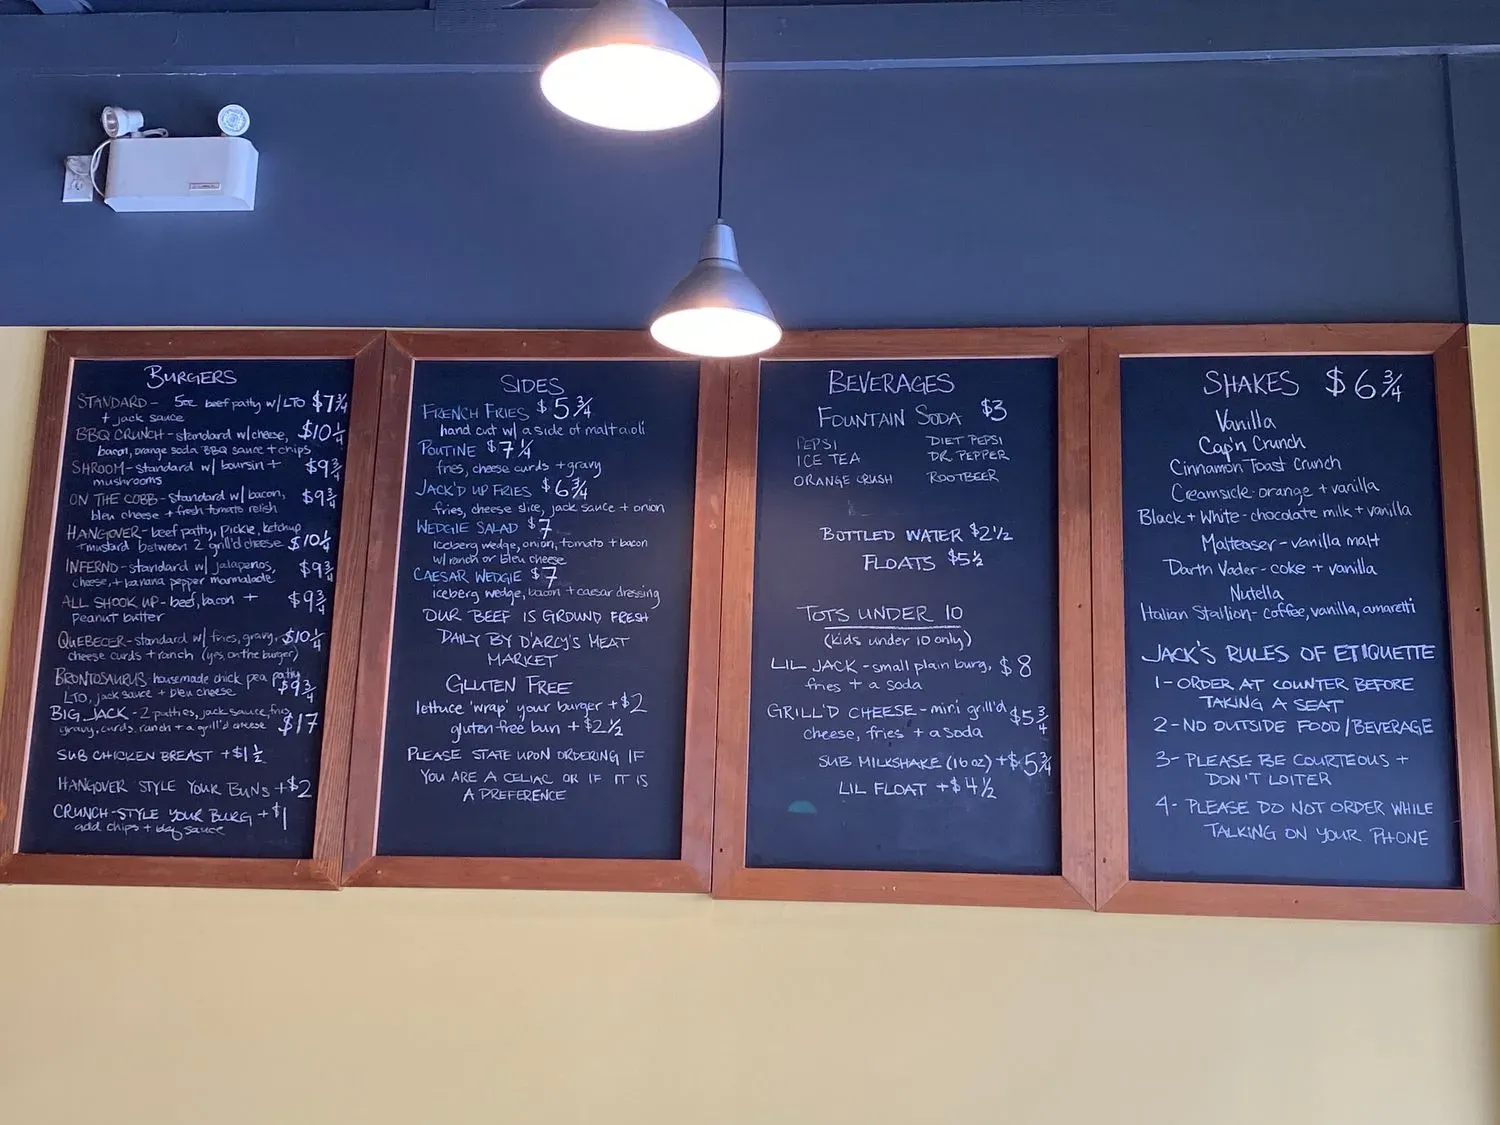 BURGERS
STANDARD - 5oz beef patty w/ LTO $7 3/4
+ jack sauce
BBQ CRUNCH - standard w/ cheese, $10 1/4
bacon, orange soda BBQ sauce + chips
SHROOM - standard w/ boursin + $9 3/4
mushrooms
ON THE COBB - standard w/ bacon, $9 3/4
bleu cheese + fresh tomato relish
HANGOVER - beef patty, pickle, ketchup
+ mustard between 2 grill'd cheese $10 1/4
INFERNO - standard w/ jalapenos, $9 3/4
cheese, + banana pepper marmalade
ALL SHOOK UP - beef, bacon + $9 3/4
peanut butter
QUEBECER - standard w/ fries, gravy, $10 1/4
cheese curds + ranch (yes, on the burger)
BRONTOSAURUS - housemade chick pea patty
LTO, jack sauce + bleu cheese $9 3/4
BIG JACK - 2 patties, jack sauce, fries,
gravy, curds, ranch + a grill'd cheese $17
SUB CHICKEN BREAST + $1 1/2
HANGOVER STYLE YOUR BUNS + $2
CRUNCH-STYLE YOUR BURG + $1
add chips + bbq sauce
SIDES
FRENCH FRIES $5 3/4
hand cut w/ a side of malt aioli
POUTINE $7 1/4
fries, cheese curds + gravy
JACK'D UP FRIES $6 3/4
fries, cheese slice, jack sauce + onion
WEDGIE SALAD $7
iceberg wedge, onion, tomato + bacon
w/ ranch or bleu cheese
CAESAR WEDGIE $7
iceberg wedge, bacon + caesar dressing
OUR BEEF IS GROUND FRESH
DAILY BY D'ARCY'S MEAT
MARKET
GLUTEN FREE
lettuce 'wrap' your burger + $2
gluten free bun + $2 1/2
PLEASE STATE UPON ORDERING IF
YOU ARE A CELIAC OR IF IT IS
A PREFERENCE
BEVERAGES
FOUNTAIN SODA $3
PEPSI DIET PEPSI
ICE TEA DR. PEPPER
ORANGE CRUSH ROOTBEER
BOTTLED WATER $2 1/2
FLOATS $5 1/2
TOTS UNDER 10
(kids under 10 only)
LIL JACK - small plain burg, $8
fries + a soda
GRILL'D CHEESE - mini grill'd $5 3/4
cheese, fries + a soda
SUB MILKSHAKE (16 oz) + $5 3/4
LIL FLOAT + $4 1/2
SHAKES $6 3/4
Vanilla
Cap'n Crunch
Cinnamon Toast Crunch
Creamsicle - orange + vanilla
Black + White - chocolate milk + vanilla
Malteaser - vanilla malt
Darth Vader - coke + vanilla
Nutella
Italian Stallion - coffee, vanilla, amaretti
JACK'S RULES OF ETIQUETTE
1 - ORDER AT COUNTER BEFORE
TAKING A SEAT
2 - NO OUTSIDE FOOD/BEVERAGE
3 - PLEASE BE COURTEOUS +
DON'T LOITER
4 - PLEASE DO NOT ORDER WHILE
TALKING ON YOUR PHONE